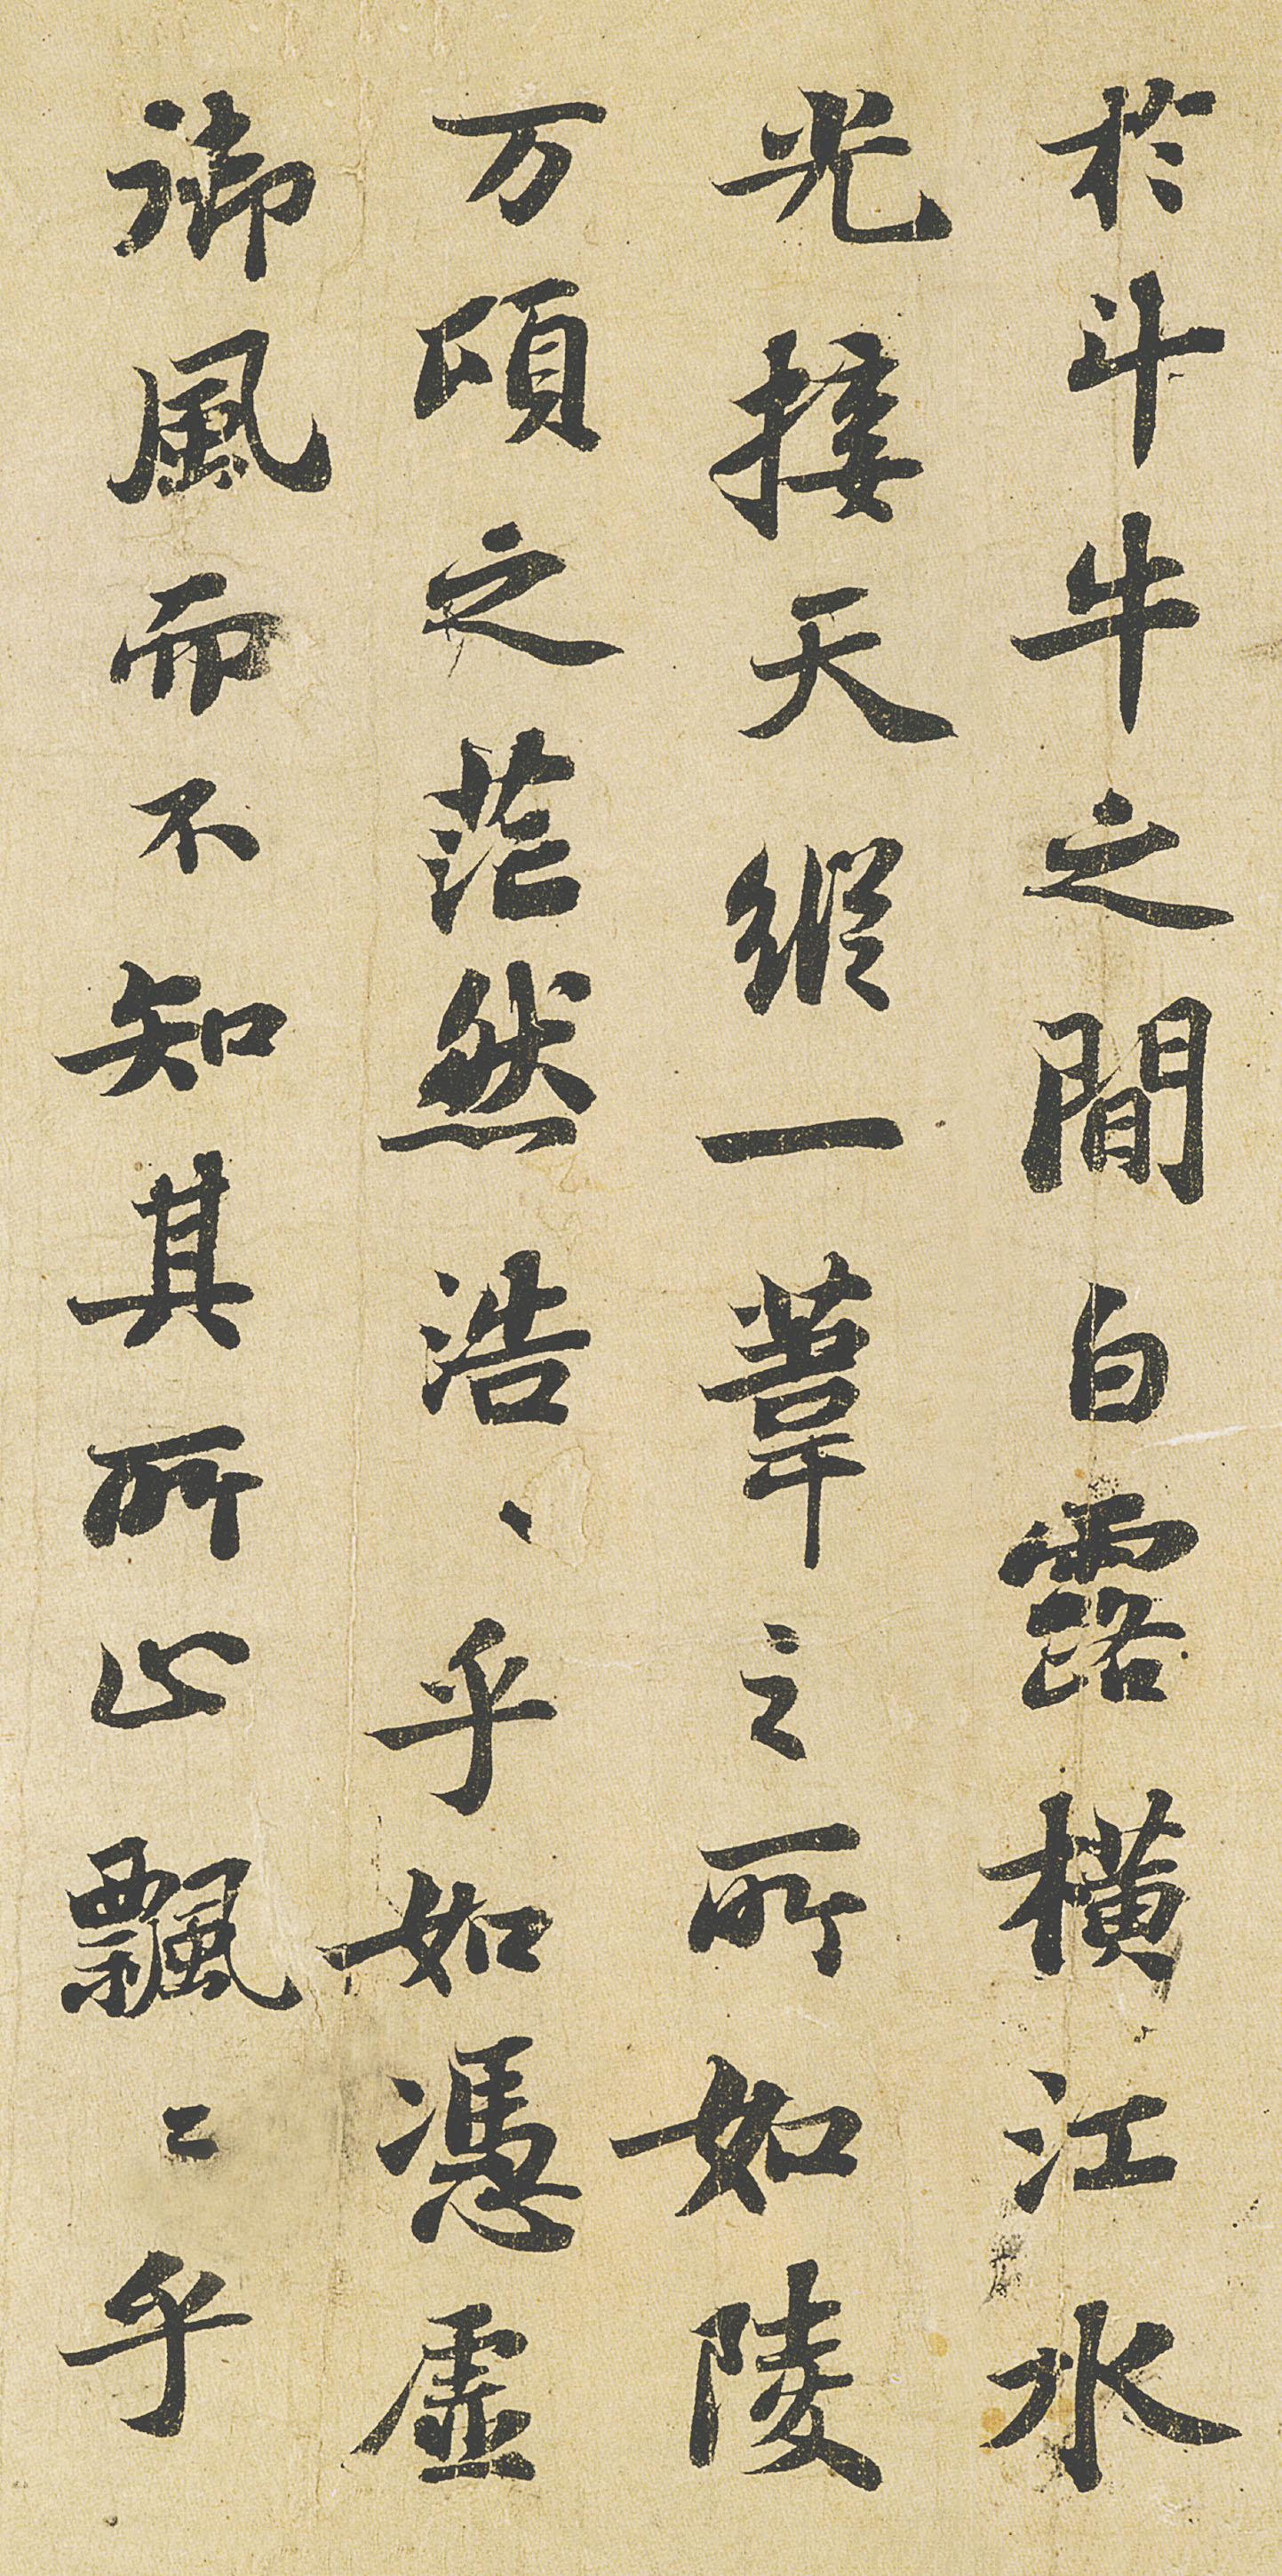 於斗牛之間白露橫江水
光接天縱一葦之所如陵
万頃之茫然浩〻乎如憑虛
御風而不知其所止飄〻乎